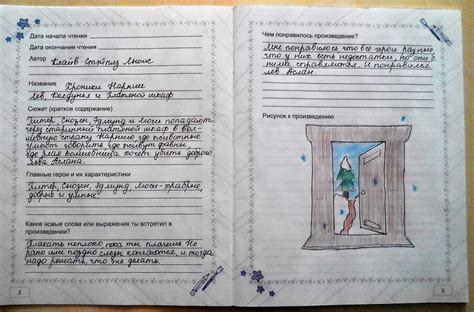 Дата начала чтения
Дата окончания чтения
Автор Клайв Стэйплз Льюис
Название Хроники Нарнии
Лев, Колдунья и Платяной шкаф
Сюжет (краткое содержание)
Питер, Сьюзен, Эдмунд и Люси попадают
через старинный платяной шкаф в вол-
шебную страну Нарнию, где животные
умеют говорить, где живут фавны,
где злая волшебница хочет убить доброго
льва Аслана.
Главные герои и их характеристики
Питер, Сьюзен, Эдмунд, Люси - храбрые,
добрые и умные.
Какие новые слова или выражения ты встретил в
произведении?
Плакать неплохо пока ты плачешь. Но
рано или поздно слезы кончаются, и тогда
надо решать, что же делать.
2
Чем понравилось произведение?
Мне понравилось, что все герои разные,
что у них есть недостатки, но они с
ними справляются. И понравился
лев Аслан.
Рисунок к произведению
3